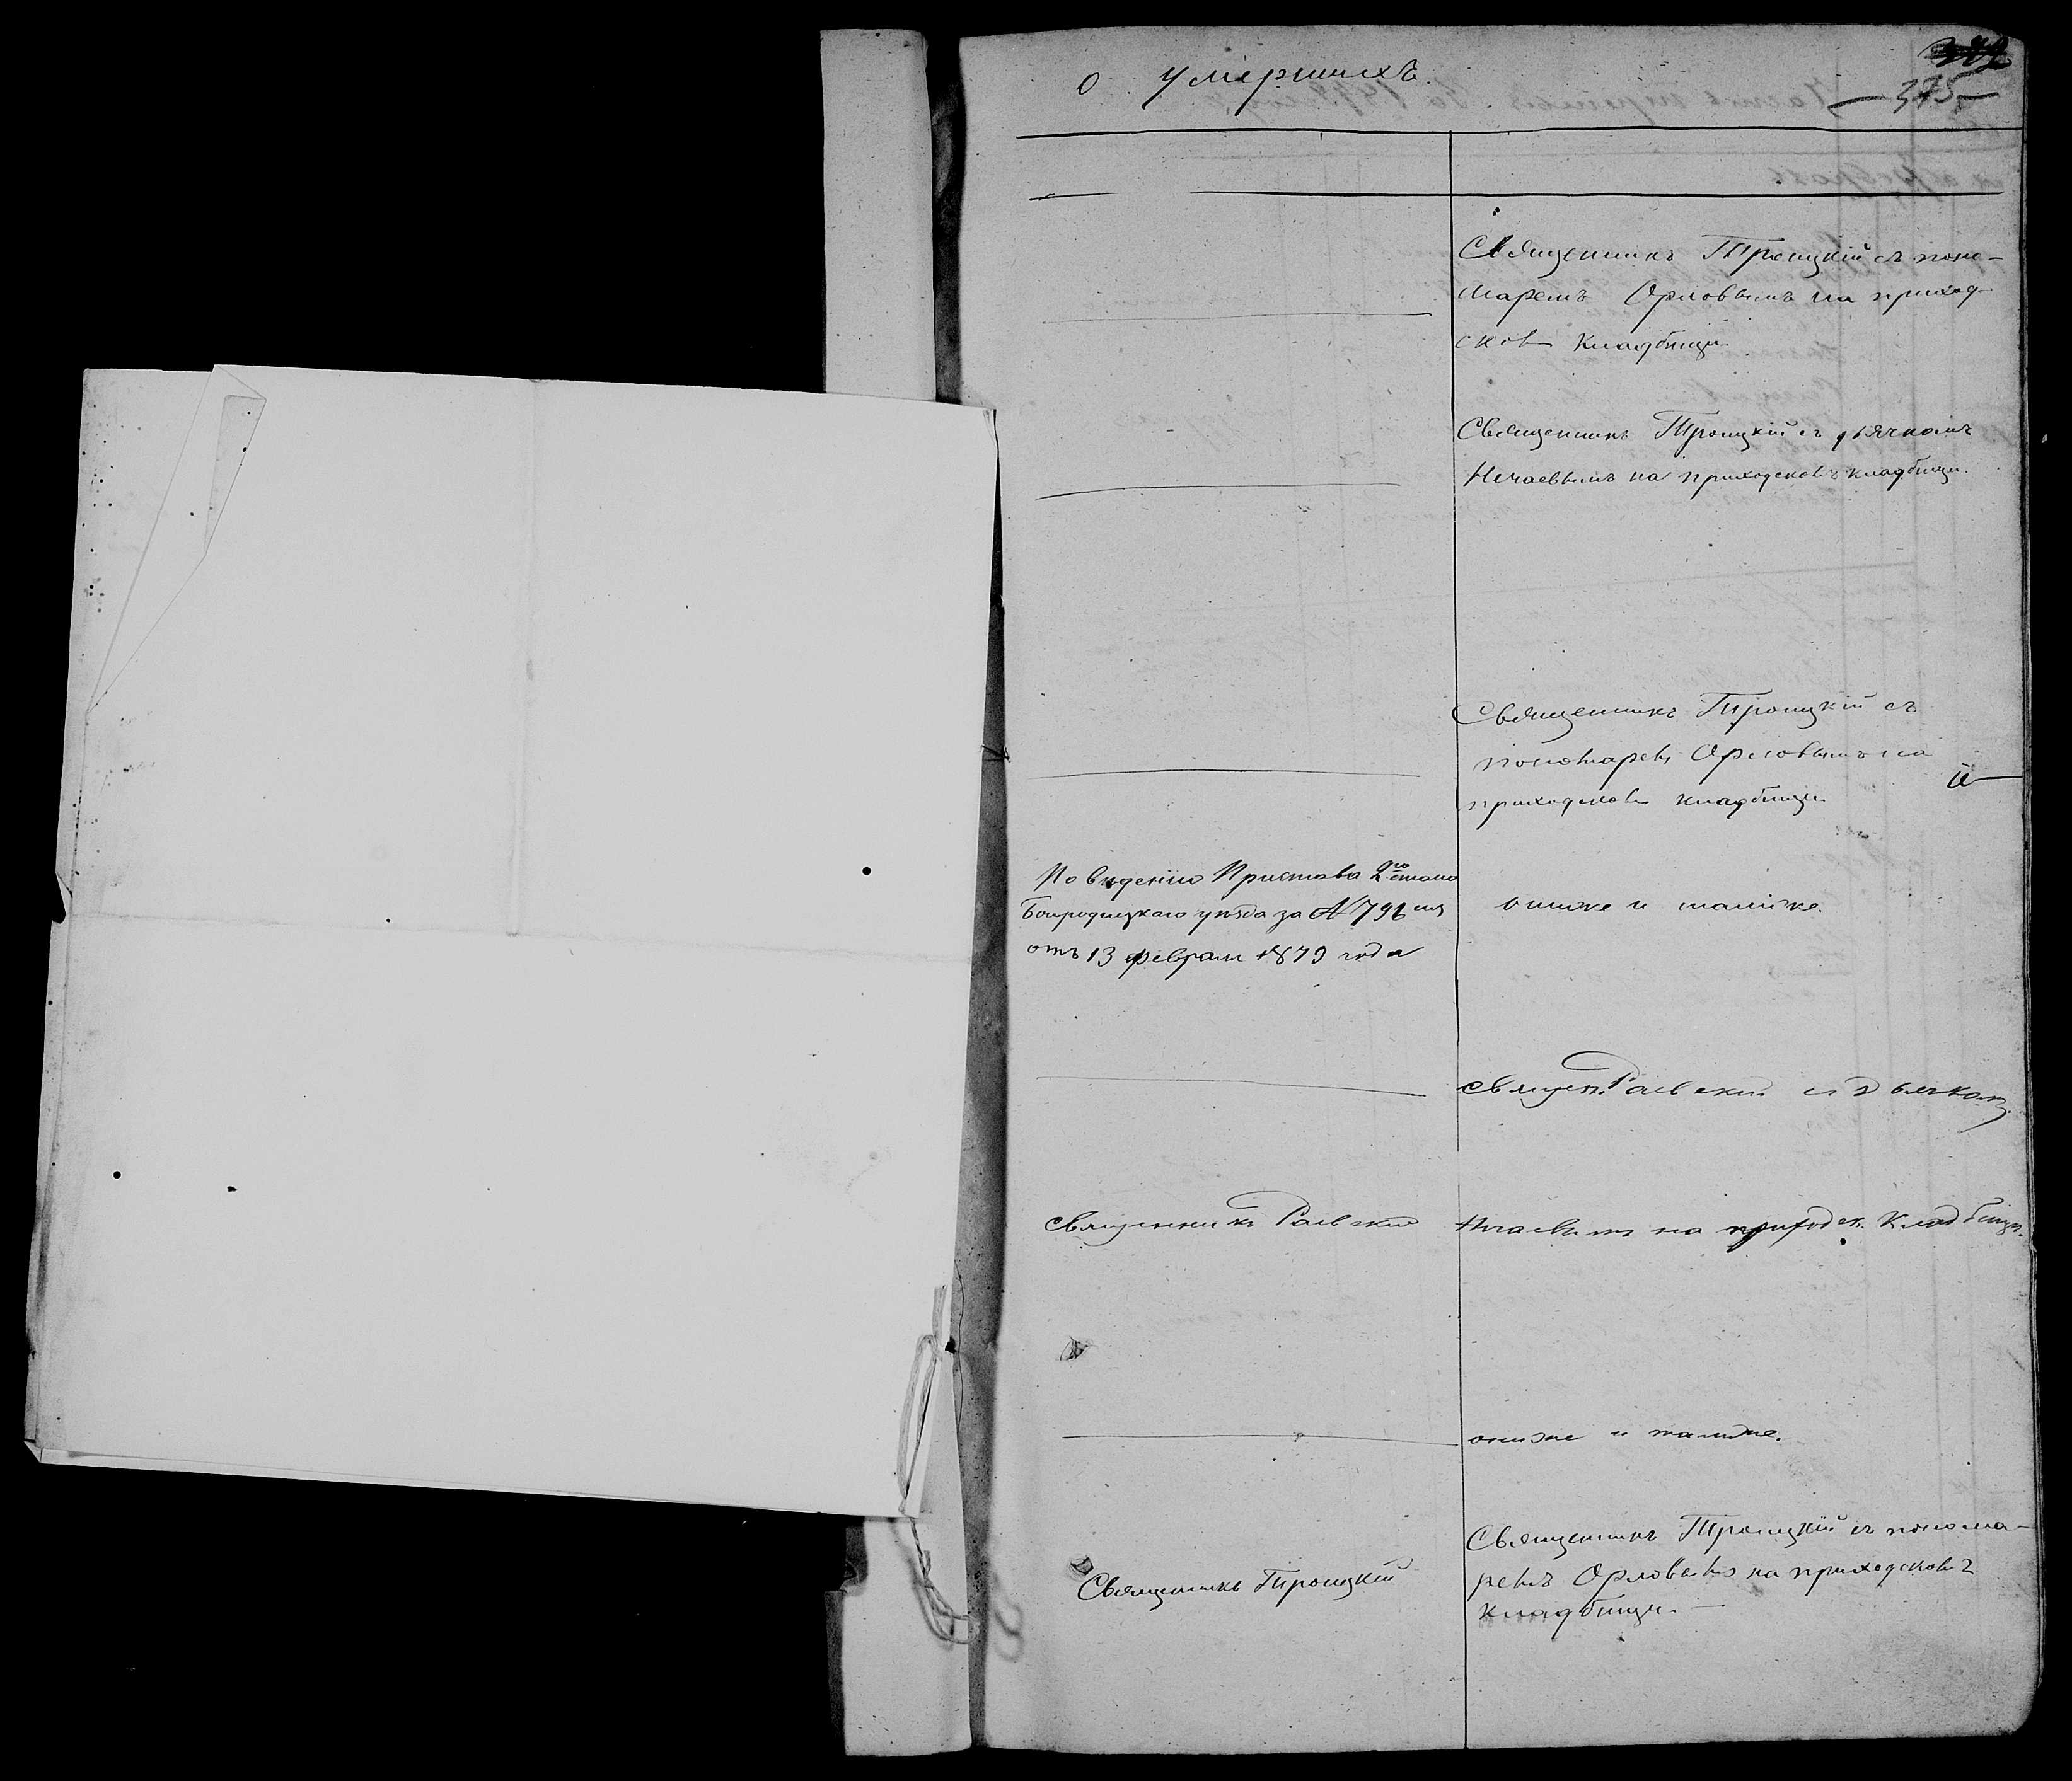 о умершихъ.
375
Священникъ Троицкій съ поно-
маремъ Орловымъ на приход-
ском кладбищѣ
Священникъ Троицкій съ дьячкомъ
Нечаевымъ на приходскомъ кладбищѣ.
Священникъ Троицкій съ
пономаремъ Орловымъ на
приходском кладбищѣ.
По видѣнію Пристава 2го стана
Богородицкаго уѣзда за №
отъ 13 февраля 1879 года
они же и тамже.
Священ. Раевский съ дьячкомъ
Священникъ Раевский
Нечаевымъ на приходск. кладбищѣ.
они же и тамже.
Священникъ Троицкій
Священникъ Троицкій съ понома-
ремъ Орловымъ на приходскомъ
кладбищѣ.